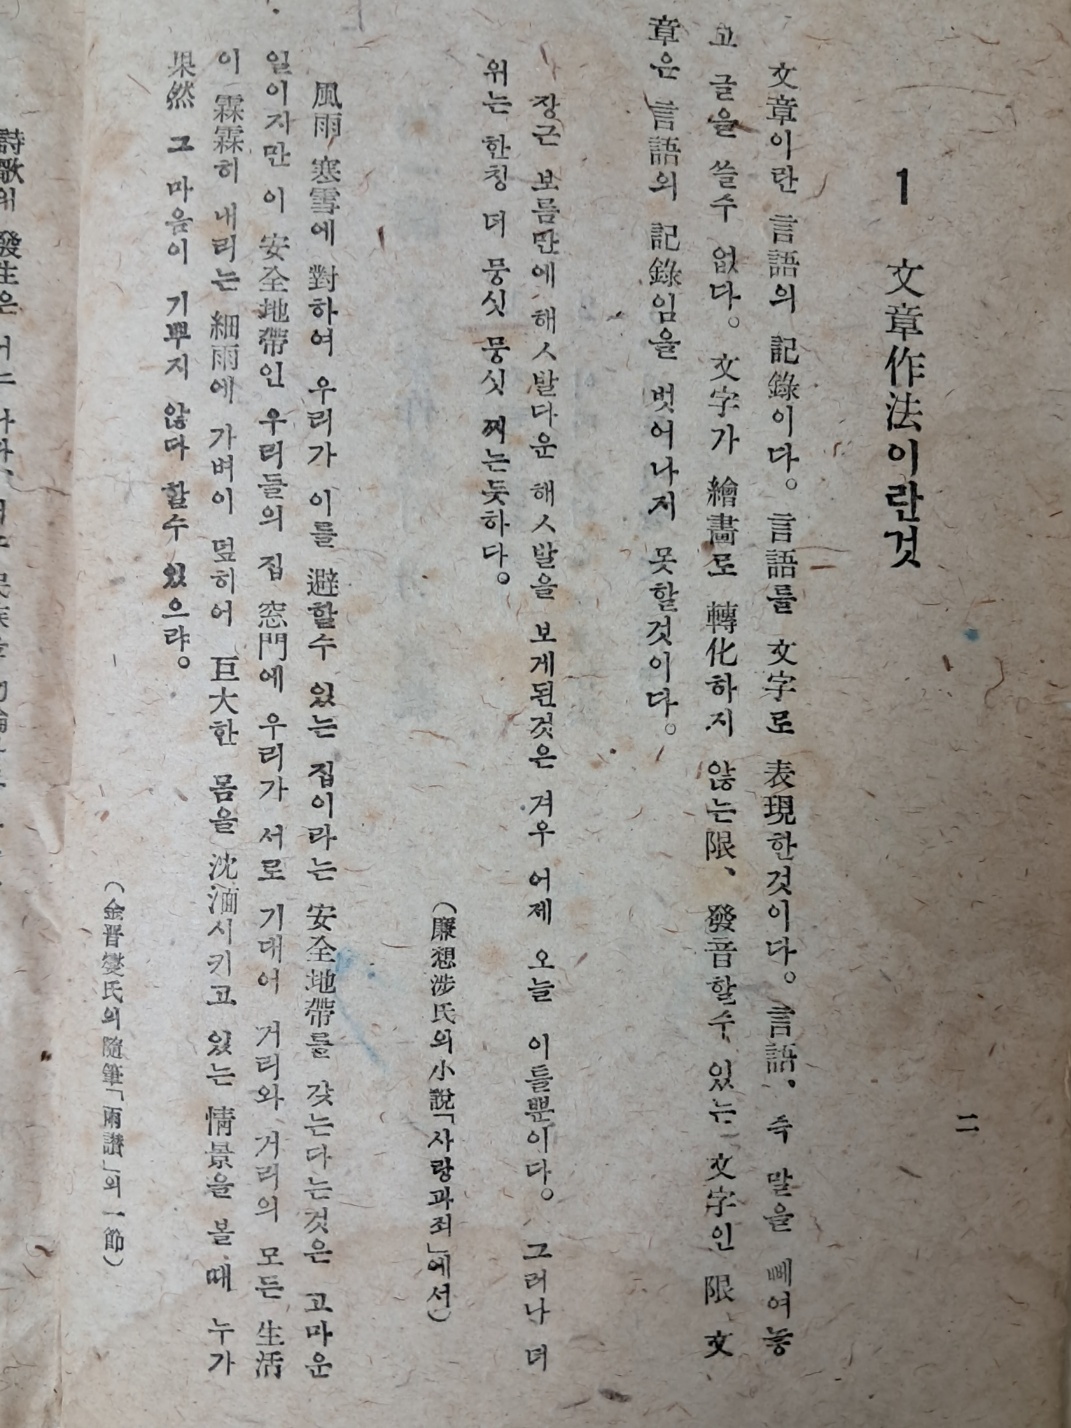 二
1 文章作法이란것
文章이란 言語의 記錄이다。言語를 文字로 表現한것이다。言語、즉 말을 빼여놓
고 글을 쓸수 없다。文字가 繪畵로 轉化하지 않는限、發音할수 있는 文字인 限、文
章은 言語의 記錄임을 벗어나지 못할것이다。
장근 보름만에 해ㅅ발다운 해ㅅ발을 보게된것은 겨우 어제 오늘 이틀뿐이다。그러나 더
위는 한칭 더 뭉싯 뭉싯 찌는듯하다。
(廉想涉氏의 小說「사랑과죄」에서)
風雨 寒雪에 對하여 우리가 이를 避할수 있는 집이라는 安全地帶를 갖는다는것은 고마운
일이지만 이 安全地帶인 우리들의 집 窓門에 우리가 서로 기대어 거리와 거리의 모든 生活
이 霖霖히 내리는 細雨에 가벼이 덮히어 巨大한 몸을 沈湎시키고 있는 情景을 볼 때 누가
果然 그 마음이 기뿌지 않다 할수 있으랴。
(金晋燮氏의 隨筆「雨讚」의 一節)
詩歌의 發生은